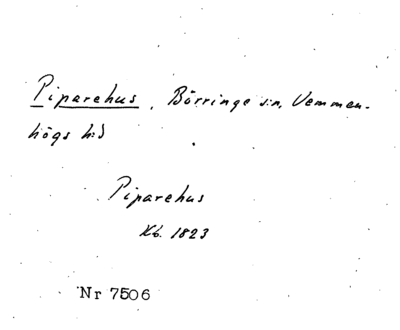 Piparehus, Börringe s:n, Vemmen-
högs h:d
Piparehus
Kb. 1823
Nr 7506